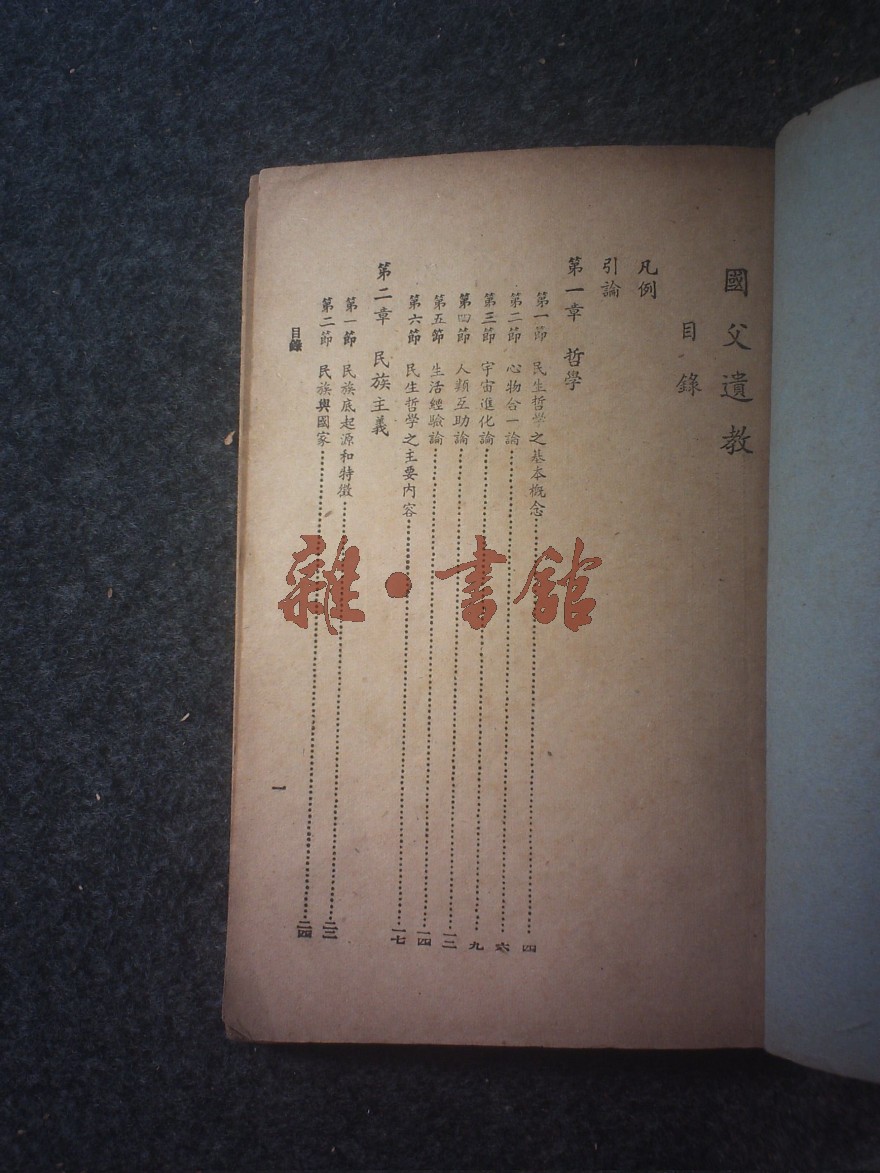 國父遺教
目錄
凡例
引論
第一章 哲學
第一節 民生哲學之基本概念……四
第二節 心物合一論……六
第三節 宇宙進化論……九
第四節 人類互助論……一二
第五節 生活經驗論……一四
第六節 民生哲學之主要內容……一七
第二章 民族主義
第一節 民族底起源和特徵……二三
第二節 民族與國家……二四
目錄
一
雜·書館